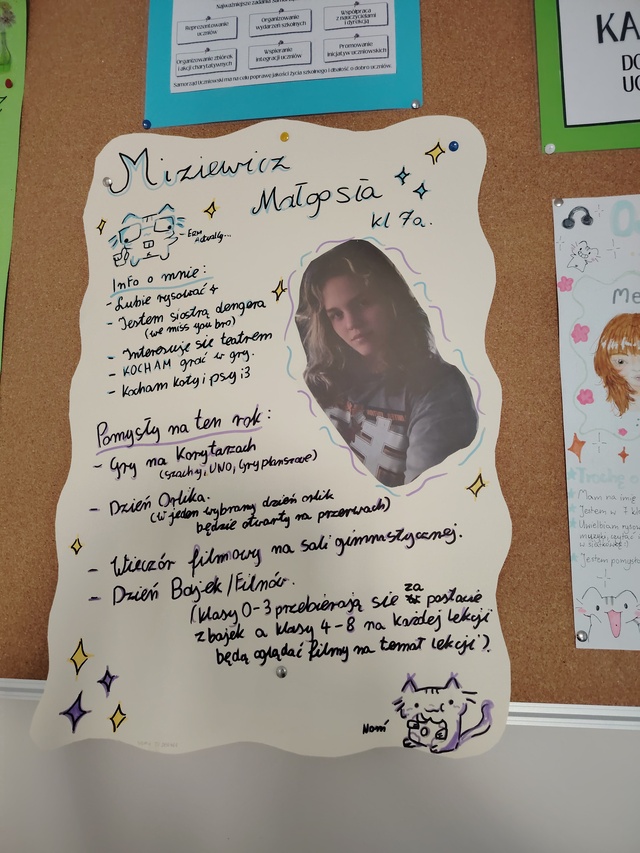 Najważniejsze zadania Samorządu
Reprezentowanie uczniów
Organizowanie wydarzeń szkolnych
Współpraca z nauczycielami i dyrekcją
Organizowanie zbiórek i akcji charytatywnych
Wspieranie integracji uczniów
Promowanie inicjatyw uczniowskich
Samorząd Uczniowski ma na celu poprawę jakości życia szkolnego i dbałość o dobro uczniów.
KA
DO
UC
Miziewicz
Małgosia
kl 7a.
- Erm
Info o mnie:
- Lubię rysować
- Jestem siostrą dengera
(we miss you bro)
- Interesuję się teatrem
- KOCHAM grać w gry.
- Kocham koty i psy i3
Pomysły na ten rok:
- Gry na Korytarzach
(szachy, UNO, Gry planszowe)
- Dzień Orlika.
(w jeden wybrany dzień orlik
będzie otwarty na przerwach)
- Wieczór filmowy na sali gimnastycznej.
- Dzień Bajek/Filmów.
(klasy 0-3 przebierają się za postacie
z bajek a klasy 4-8 na każdej lekcji
będą oglądać filmy na temat lekcji).
Nom
Me
Trochę o
Mam na imię
Jestem w 7 kl
Uwielbiam rysow
muzyki, czytać
w siatkówkę:)
Jestem pomysło